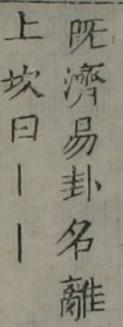 既濟易卦名離
上坎曰丨丨